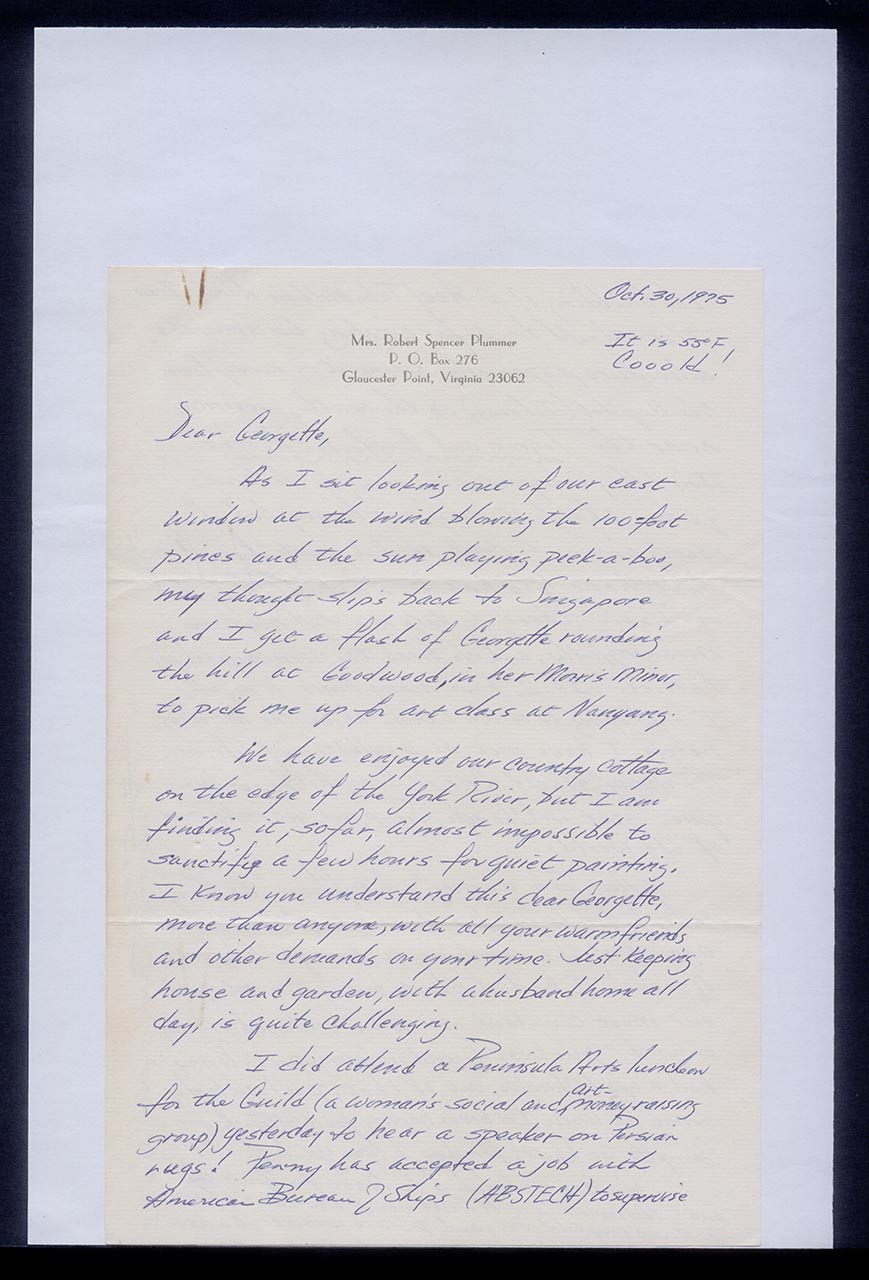 Oct. 30, 1975
It is 55°F.
Cooold!
Mrs. Robert Spencer Plummer
P. O. Box 276
Gloucester Point, Virginia 23062
Dear Georgette,
As I sit looking out of our east
window at the wind blowing the 100-foot
pines and the sun playing peek-a-boo,
my thought slips back to Singapore
and I get a flash of Georgette rounding
the hill at Goodwood, in her Morris Minor,
to pick me up for art class at Nanyang.
We have enjoyed our country cottage
on the edge of the York River, but I am
finding it, so far, almost impossible to
sanctify a few hours for quiet painting.
I know you understand this dear Georgette,
more than anyone, with all your warm friends
and other demands on your time. Just keeping
house and garden, with a husband home all
day, is quite challenging.
I did attend a Peninsula Arts luncheon
for the Guild (a woman's social and art-money raising
group) yesterday to hear a speaker on Persian
rugs! Penny has accepted a job with
American Bureau of Ships (ABSTECH) to supervise